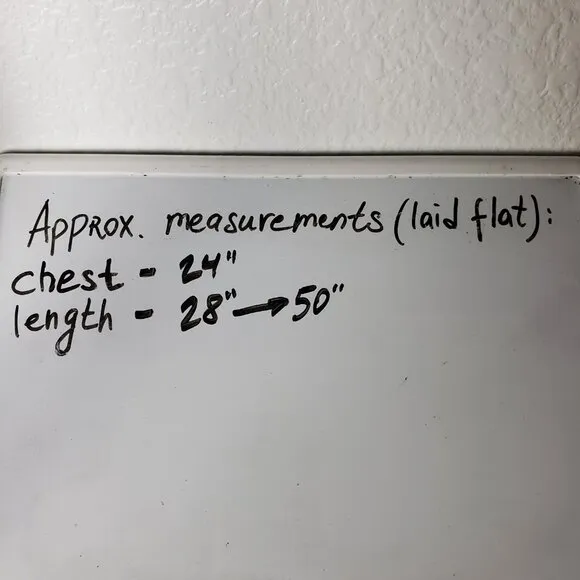 APPROX. measurements (laid flat):
chest - 24"
length - 28" → 50"